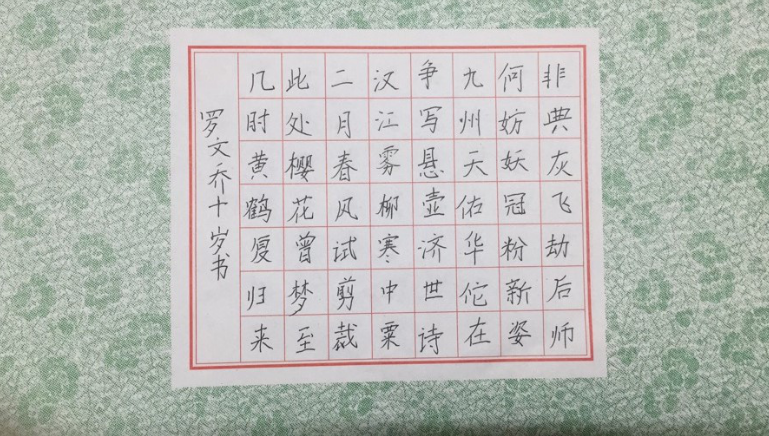 非典灰飞劫后师
何妨妖冠粉新姿
九州天佑华佗在
争写悬壶济世诗
汉江雾柳寒中粟
二月春风试剪裁
此处樱花曾梦至
几时黄鹤复归来
罗文乔十岁书